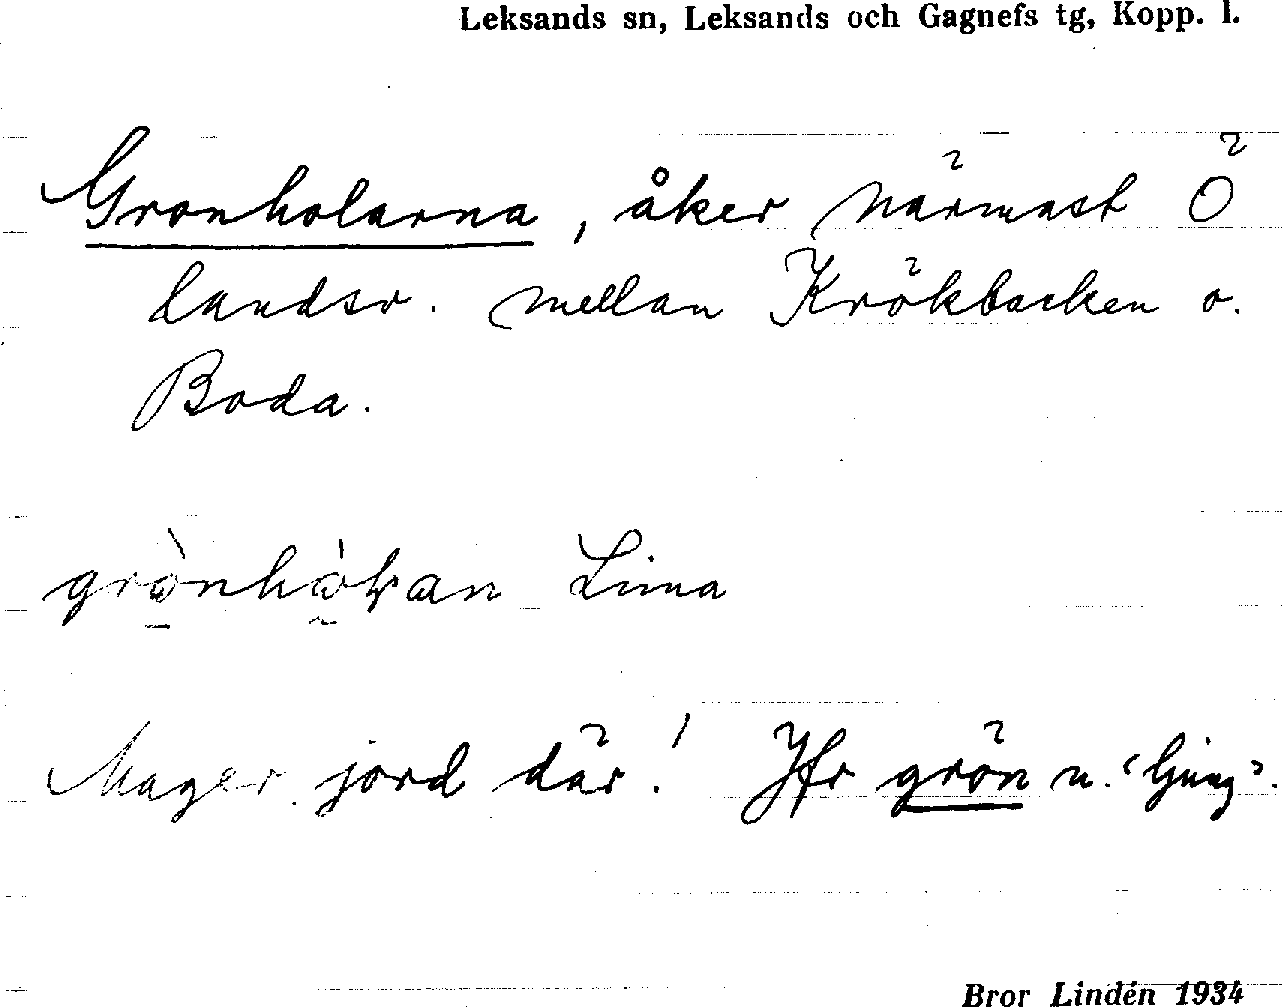 Leksands sn, Leksands och Gagnefs tg, Kopp. l.
Gronholarna, åker närmast Ö
landsv. mellan Krökbacken o.
Boda.
grònhòḷan Lima
Mager jord där! Jfr grön n. 'ljung'.
Bror Lindén 1934